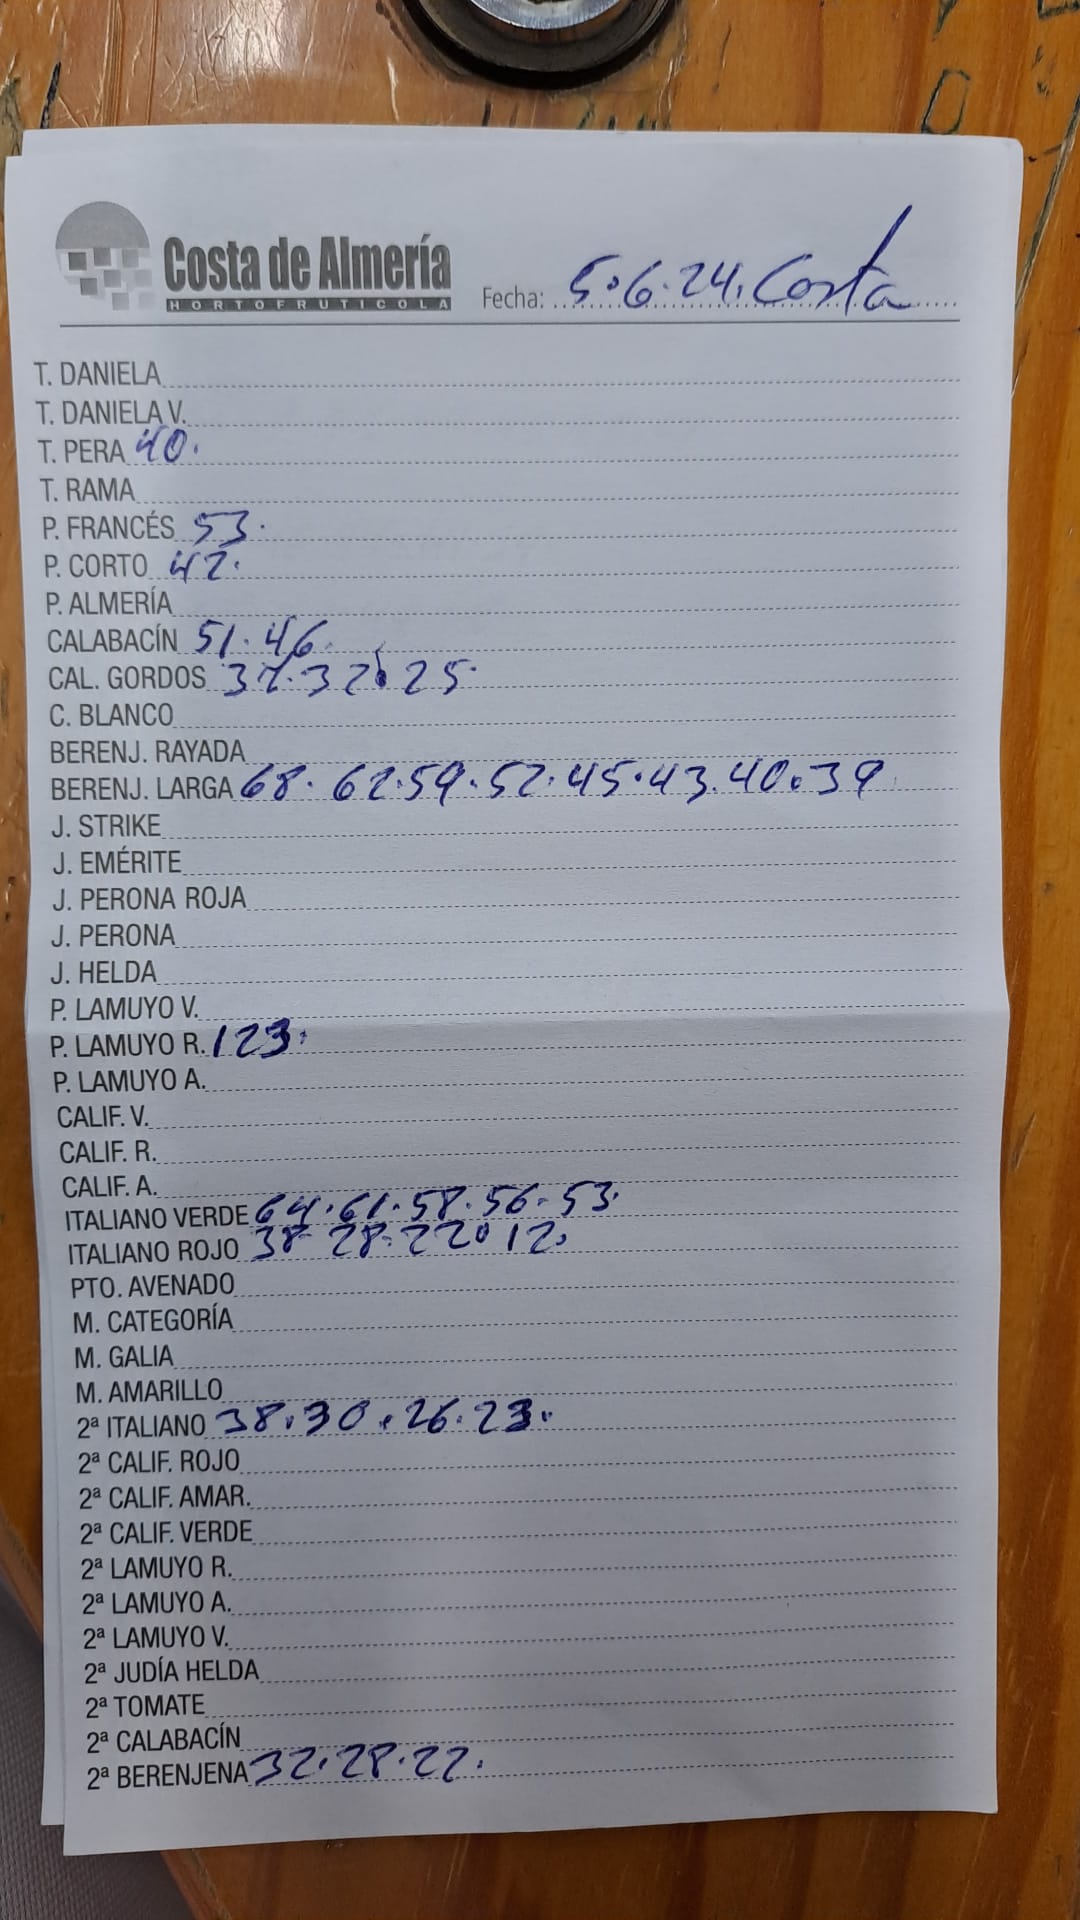 Costa de Almería
HORTOFRUTICOLA
Fecha: 5.6.24. Costa
T. DANIELA
T. DANIELA V.
T. PERA 40.
T. RAMA
P. FRANCÉS 53.
P. CORTO 42.
P. ALMERÍA
CALABACÍN 51.46.
CAL. GORDOS 37.32.25.
C. BLANCO
BERENJ. RAYADA
BERENJ. LARGA 68.62.59.52.45.43.40.39
J. STRIKE
J. EMÉRITE
J. PERONA ROJA
J. PERONA
J. HELDA
P. LAMUYO V.
P. LAMUYO R. 123.
P. LAMUYO A.
CALIF. V.
CALIF. R.
CALIF. A.
ITALIANO VERDE 64.61.58.56.53.
ITALIANO ROJO 38 28.22.12.
PTO. AVENADO
M. CATEGORÍA
M. GALIA
M. AMARILLO
2ª ITALIANO 38.30.26.23.
2ª CALIF. ROJO
2ª CALIF. AMAR.
2ª CALIF. VERDE
2ª LAMUYO R.
2ª LAMUYO A.
2ª LAMUYO V.
2ª JUDÍA HELDA
2ª TOMATE
2ª CALABACÍN
2ª BERENJENA 32.28.22.